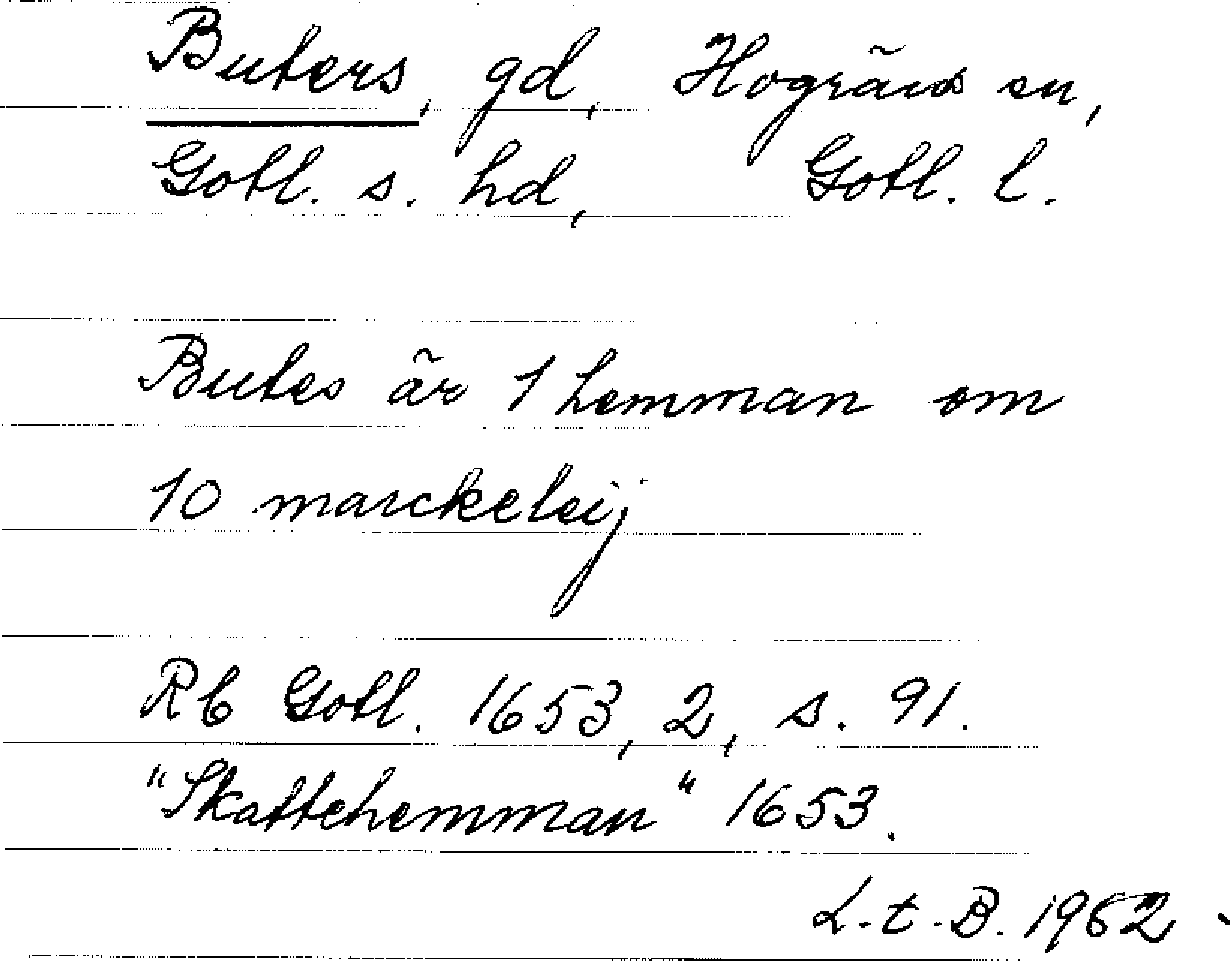 Buters, gd, Hogräns sn,
Gotl. s. hd, Gotl. l.
Butes är 1 hemman om
10 marckeleij
Rb Gotl. 1653, 2, s. 91.
"Skattehemman" 1653.
L. t. B. 1962.